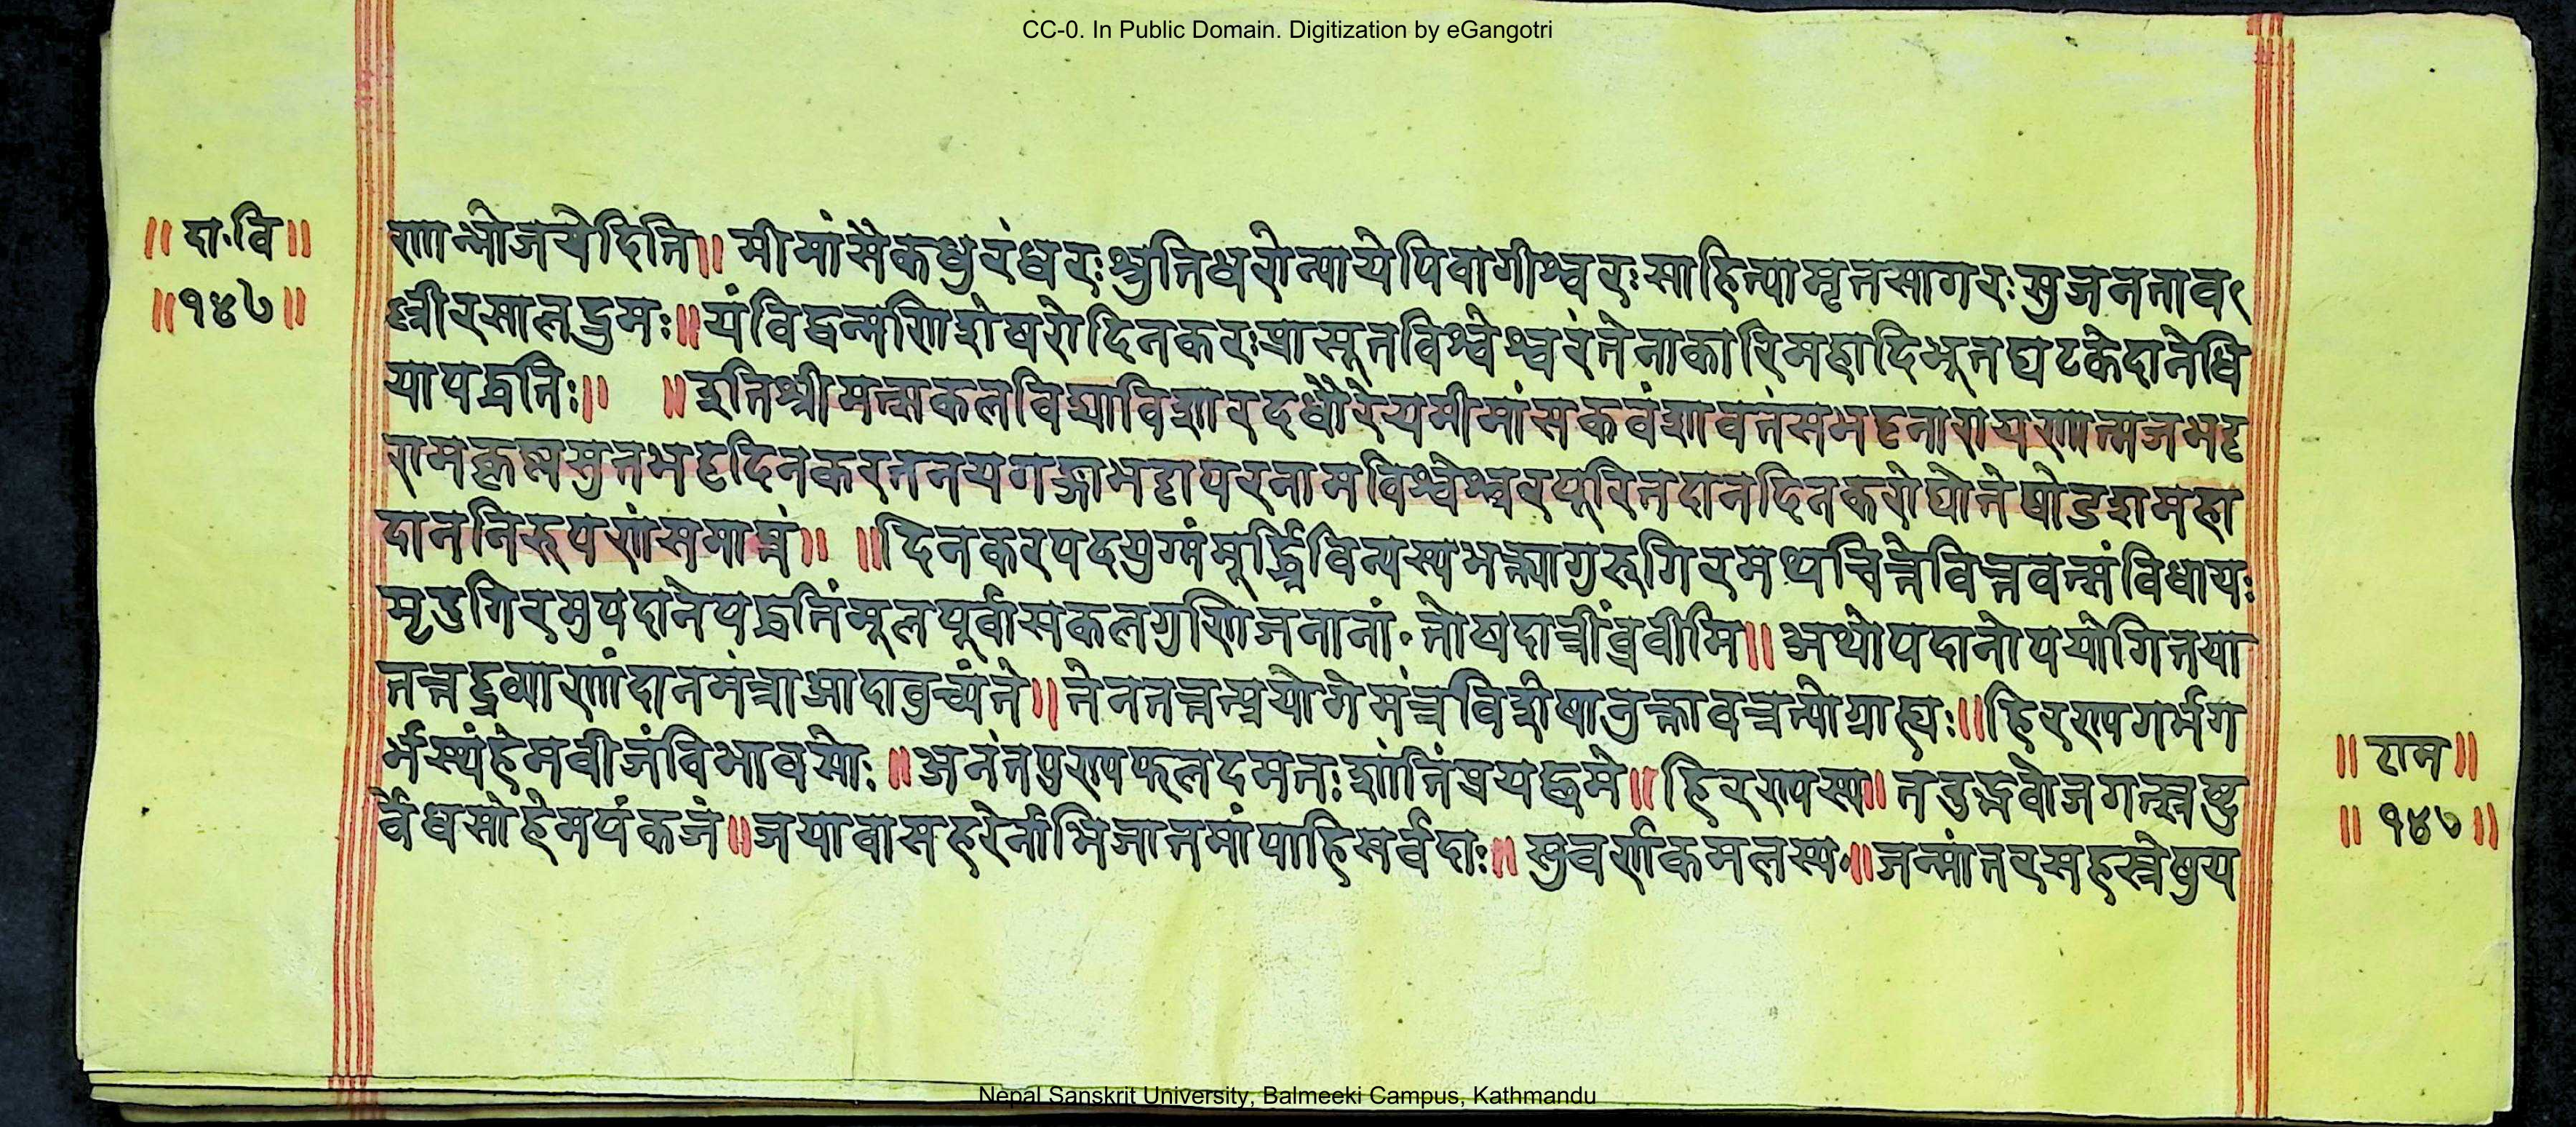 CC-0. In Public Domain. Digitization by eGangotri
॥दा.वि॥
॥१४७॥
णान्भोजयेदिति॥ मीमांसैकधुरंधरःश्रुतिधरोन्यायेपिवागीश्वरःसाहित्यामृतसागरःसुजनताव
ल्लीरसालद्रुमः॥यंविद्वन्मणिशेषरोदिनकरःप्रासूतविश्वेश्वरंतेनाकारिमहादिभूतघटकेदानेधि
यापद्धतिः॥ ॥इतिश्रीमत्सकलविद्याविशारदधौरेयमीमांसकवंशावतंसभट्टनारायणात्मजभट्ट
रामकृष्णसुतभट्टदिनकरतनयगङ्गाभट्टापरनामविश्वेश्वरपूरितदानदिनकरोद्योतेषोडशमहा
दाननिरूपणंसमाप्तं॥ ॥दिनकरपदयुग्मंमूर्द्ध्निविन्यस्यभक्त्यागुरुगिरमथचित्तेवित्तवत्संविधायः
मृदुगिरमुपदानेपद्धतिंमूलपूर्वांसकलगुणिजनानां॰तोषदात्रींब्रवीमि॥अथोपदानोपयोगितया
तत्तद्द्रव्याणांदानमंत्राआदावुच्यंते॥तेनतत्तत्प्रयोगेमंत्रविशेषानुक्तावत्रत्योग्राह्यः॥हिरण्यगर्भग
र्भस्थंहेमबीजंविभावसोः॥अनंतपुण्यफलदमतःशांतिंप्रयच्छमे॥हिरण्यस्य॥तदुद्भवोजगत्स्रष्टु
र्वेधसोहेमपंकजं॥जयावासहरेर्नाभिजातमांपाहिसर्वदाः॥सुवर्णकमलस्य॥जन्मांतरसहस्रेषुय
॥राम॥
॥१४७॥
Nepal Sanskrit University, Balmeeki Campus, Kathmandu